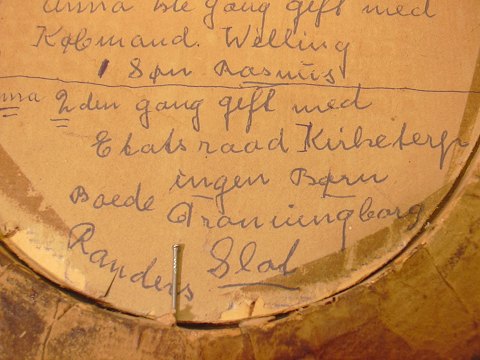 Anna 1ste gang gift med
Købmand. Welling
1 Søn Rasmus
Anna 2den gang gift med
Etatsraad Kirketerp
ingen Børn
Boede Dronningborg
Randers Slot